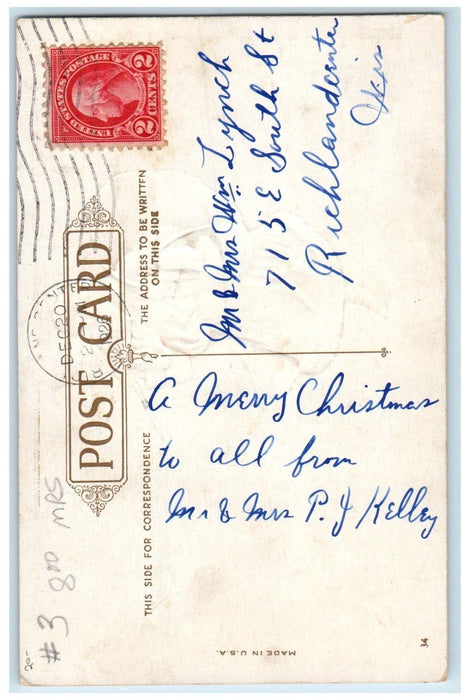 UNITED STATES POSTAGE
2 CENTS 2
DEC 20
POST CARD
THE ADDRESS TO BE WRITTEN
ON THIS SIDE
THIS SIDE FOR CORRESPONDENCE
A Merry Christmas
to all from
Mr & Mrs P. J Kelley
Mr & Mrs Wm Lynch
715 E South St
Richlandcenter
Wis
#3 800 MRS
20-
MADE IN U.S.A.
34